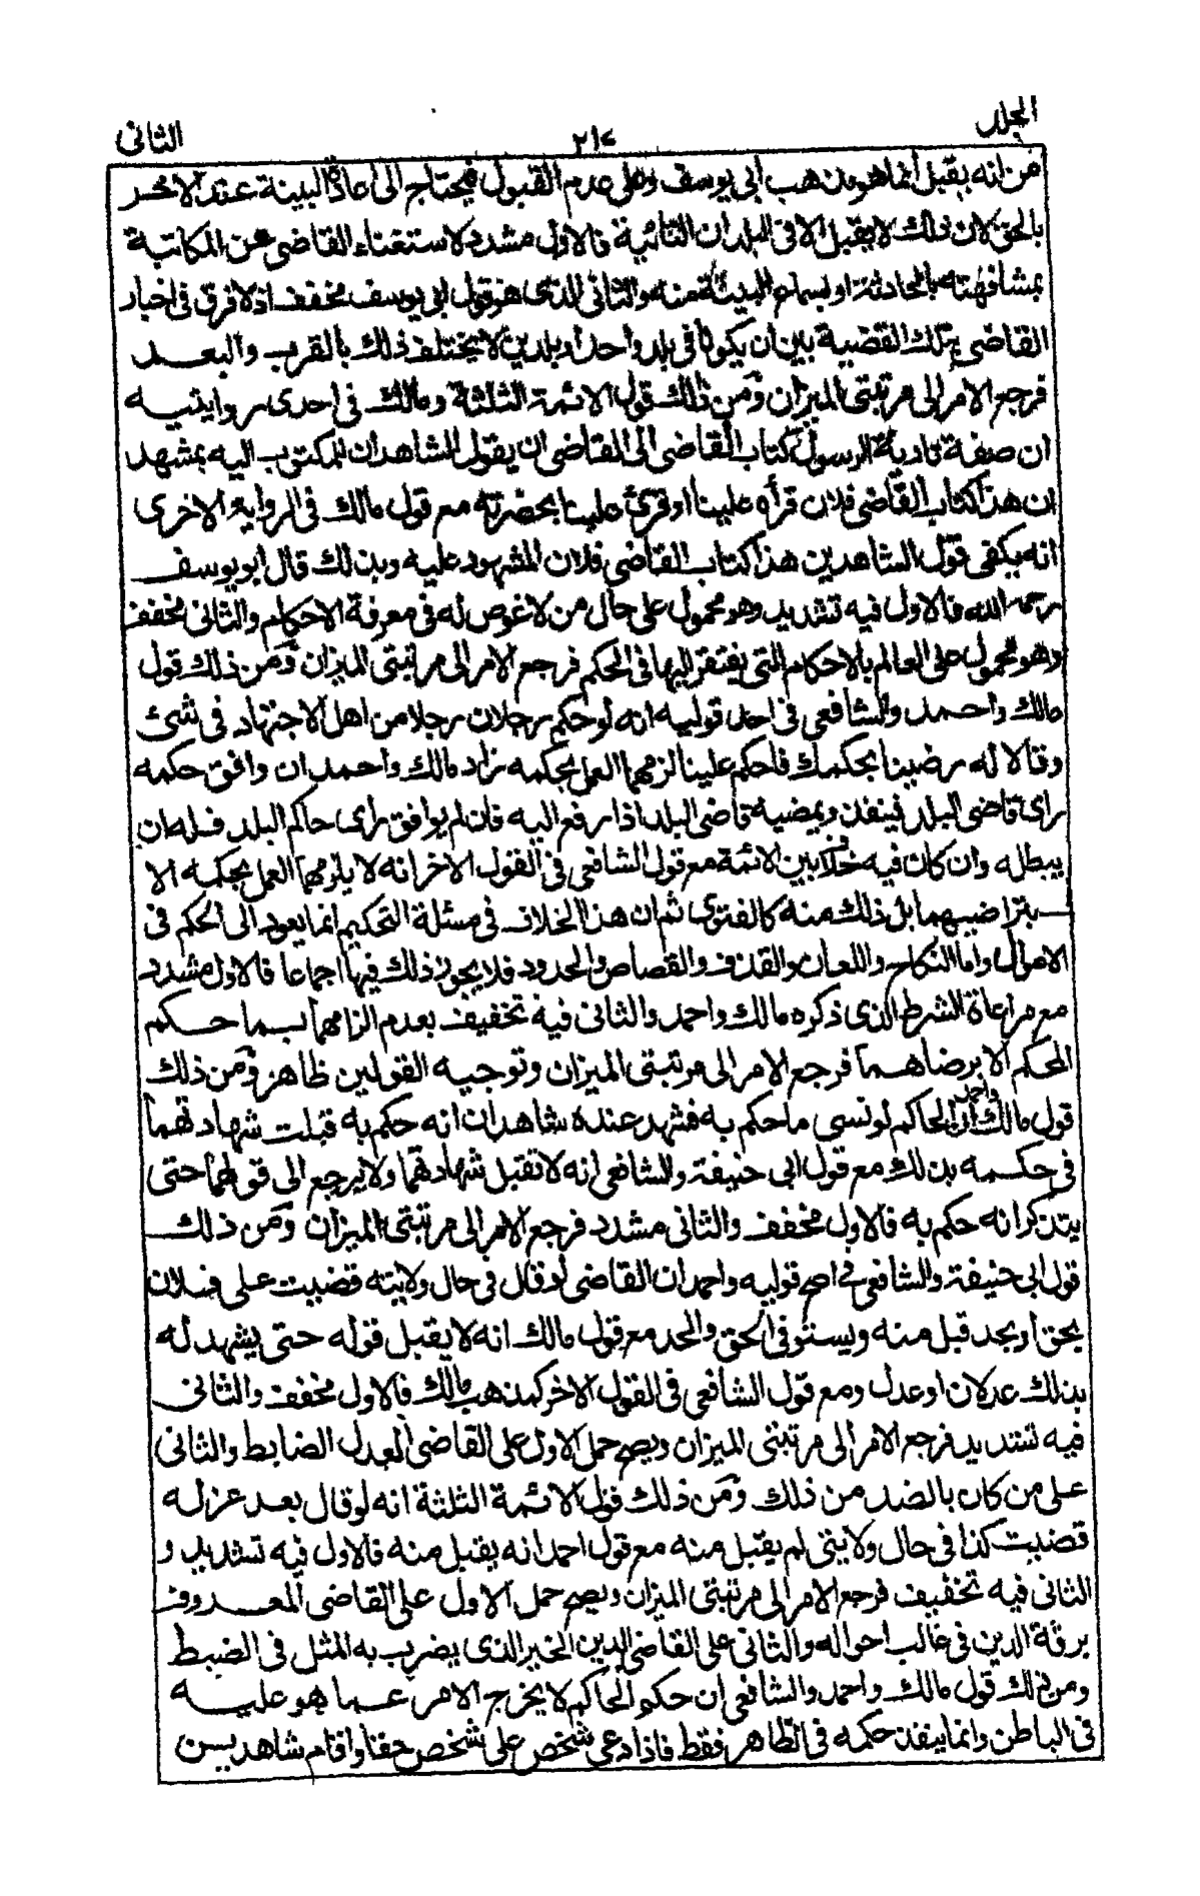 المجلد
٢١٧
الثانى
من انه يقبل انما هو مذهب ابى يوسف وعلى عدم القبول فيحتاج الى اعادة البينة عند الاخر
بالحق لان ذلك لا يقبل الا فى البلدان النائية فالاول مشدد لاستغناء القاضى عن المكاتبة
بمشافهته بالمحادثة او بسماع البينة منه والثانى الذى هو قول ابى يوسف مخفف اذ لا فرق فى اخبار
القاضى بتلك القضية بين ان يكونا فى بلد واحد او بلدين لا يختلف ذلك بالقرب والبعد
فرجع الامر الى مرتبتى الميزان ومن ذلك قول الائمة الثلثة ومالك فى احدى روايتيه
ان صفة تادية الرسول كتاب القاضى الى القاضى ان يقول الشاهدان للمكتوب اليه بمشهد
ان هذا كتاب القاضى فلان قرأه علينا او قرئ علينا بحضرته مع قول مالك فى الرواية الاخرى
انه يكفى قول الشاهدين هذا كتاب القاضى فلان المشهود عليه وبذلك قال ابو يوسف
رحمه الله فالاول فيه تشديد وهو محمول على حال من لا غوص له فى معرفة الاحكام والثانى مخفف
وهو محمول على العالم بالاحكام التى يفتقر اليها فى الحكم فرجع الامر الى مرتبتى الميزان ومن ذلك قول
مالك واحمد والشافعى فى احد قوليه انه لو حكم رجلان رجلا من اهل الاجتهاد فى شئ
وقالا له رضينا بحكمك فاحكم علينا لزمهما العمل بحكمه زاد مالك واحمد ان وافق حكمه
راى قاضى البلد فينفذ ويمضيه قاضى البلد اذا رفع اليه فان لم يوافق راى حاكم البلد فله ان
يبطله وان كان فيه خلاف بين الائمة مع قول الشافعى فى القول الاخر انه لا يلزمهما العمل بحكمه الا
بتراضيهما بل ذلك منه كالفتوى ثم ان هذا الخلاف فى مسئلة التحكيم انما يعود الى الحكم فى
الاموال واما النكاح واللعان والقذف والقصاص والحدود فلا يجوز ذلك فيها اجماعا فالاول مشدد
مع مراعاة الشرط الذى ذكره مالك واحمد والثانى فيه تخفيف بعدم الزامهما بما حكم
المحكم الا برضاهما فرجع الامر الى مرتبتى الميزان وتوجيه القولين ظاهر ومن ذلك
قول مالك واحمد ان الحاكم لو نسى ما حكم به فشهد عنده شاهدان انه حكم به قبلت شهادتهما
فى حكمه بذلك مع قول ابى حنيفة والشافعى انه لا تقبل شهادتهما ولا يرجع الى قولهما حتى
يتذكر انه حكم به فالاول مخفف والثانى مشدد فرجع الامر الى مرتبتى الميزان ومن ذلك
قول ابى حنيفة والشافعى فى اصح قوليه واحمد ان القاضى لو قال فى حال ولايته قضيت على فلان
بحق او بحد قبل منه ويستوفى الحق والحد مع قول مالك انه لا يقبل قوله حتى يشهد له
بذلك عدلان او عدل ومع قول الشافعى فى القول الاخر كمذهب مالك فالاول مخفف والثانى
فيه تشديد فرجع الامر الى مرتبتى الميزان ويصح حمل الاول على القاضى العدل الضابط والثانى
على من كان بالضد من ذلك ومن ذلك قول الائمة الثلثة انه لو قال بعد عزله
قضيت كذا فى حال ولايتى لم يقبل منه مع قول احمد انه يقبل منه فالاول فيه تشديد و
الثانى فيه تخفيف فرجع الامر الى مرتبتى الميزان ويصح حمل الاول على القاضى المعروف
برقة الدين فى غالب احواله والثانى على القاضى الدين الخير الذى يضرب به المثل فى الضبط
ومن ذلك قول مالك واحمد والشافعى ان حكم الحاكم لا يخرج الامر عما هو عليه
فى الباطن وانما ينفذ حكمه فى الظاهر فقط فاذا ادعى شخص على شخص حقا واقام شاهدين